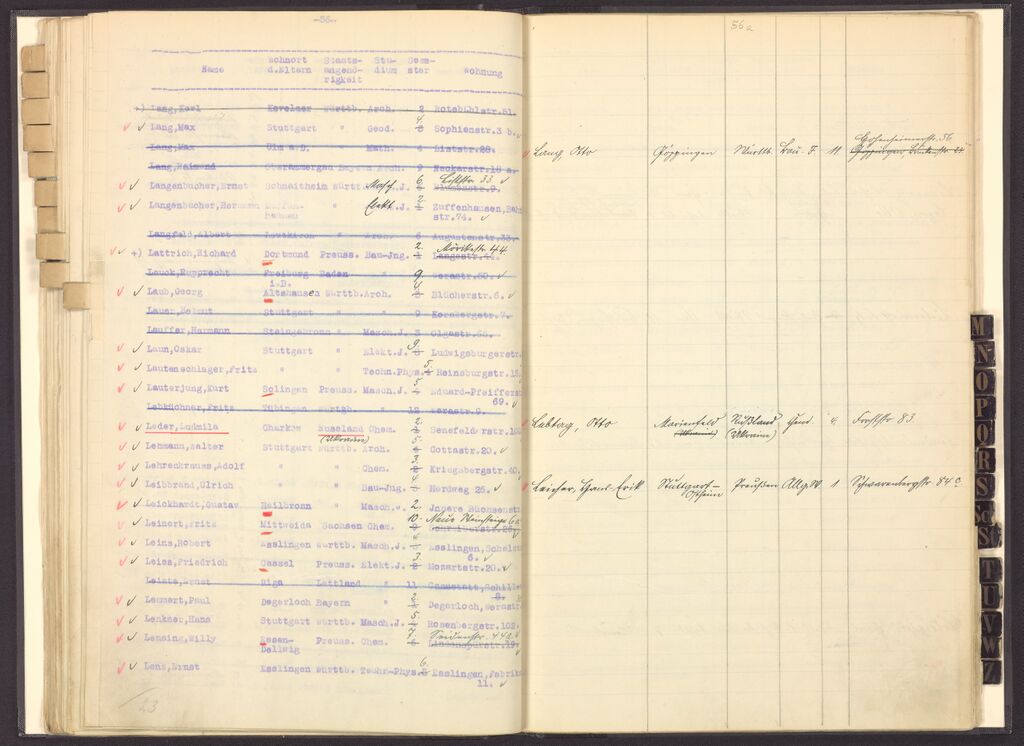 -56-
Name Wohnort d.Eltern Staats-angehö-rigkeit Stu-dium Seme-ster Wohnung
+) Lang,Karl Kevelaer Württb. Arch. 2 Rotebühlstr.51.
Lang,Max Stuttgart " Geod. 4. 3 Sophienstr.3 b.
Lang,Max Ulm a.D. " Math. 4 Liststr.28.
Lang,Raimund Oberammergau Bayern Arch. 9 Neckarstr.18 a.
Langenbucher,Ernst Schnaitheim Württ. Masch.J. 6. Liststr. 33. Blumenstr.9.
Langenbucher,Hermann Zuffen-hausen " Elekt.J. 2. 1 Zuffenhausen,Bahn
str.74.
Langfeld,Albert Leutkirch " Arch. 6 Augustenstr.33.
+) Lattrich,Richard Dortmund Preuss. Bau-Jng. 2. 1 Mörikestr. 44. Langestr.
Leuck,Rupprecht Freiburg Baden " 9. Werastr.50.
i.B.
Laub,Georg Altshausen Württb.Arch. 4 3 Blücherstr.6.
Lauer,Helmut Stuttgart " " 9 Kornbergstr.7.
Lauffer,Hermann Steingebronn " Masch.J. 3 Olgastr.53.
Laun,Oskar Stuttgart " Elekt.J. 9. 8 Ludwigsburgerstr.
Lautenschlager,Fritz " " Techn.Phys. 5. 4 Heinsburgstr.15.
Lauterjung,Kurt Solingen Preuss. Masch.J. 5. Eduard-Pfeifferst
69.
Lebküchner,Fritz Tübingen Württb. " 12 Werastr.9.
Leder,Ludmila Charkow Russland Chem. 2. Senefelderstr.10
(Ukraine)
Lehmann,Walter Stuttgart Württb.Arch. 5. Cottastr.20.
Lehrenkrauss,Adolf " " Chem. Kriegsbergstr.40.
Leibbrand,Ulrich " " Bau-Jng. Herdweg 25.
Leickhardt,Gustav Heilbronn " Masch. 2. Innere Büchsenst
Leinert,Fritz Mittweida Sachsen Chem. 10. Neue Weinsteige
Leins,Robert Esslingen Württb. Masch.J. Esslingen,Schelzt
6.
Leiss,Friedrich Cassel Preuss. Elekt.J. 3. 2 Mozartstr.20.
Leists,Ernst Riga Lettland " 11 Cannstatt,Schill
9.
Lemmert,Paul Degerloch Bayern " 2. Degerloch,Werastr
Lenkner,Hans Stuttgart Württb. Masch.J. 5. Rosenbergstr.102.
Lensing,Willy Essen-Dellwig Preuss. Chem. 7 Seidenstr. Lindenspürstr.
Lenz,Ernst Esslingen Württb. Techn-Phys. 6. 5 Esslingen,Fabrik
11.
23
56a
Lang Otto Göppingen Württ. Bau. J. 11 Hohenheimerstr. 56
Labtag, Otto Marienfeld Rußland (Ukraine) Forststr 83.
Leicher, Hans-Erik Stuttgart-Ostheim Preußen Allg.W. 1 Schwarenbergstr 84
M
N
O
P
Q
R
S
Sch
St
T
U
V
W
Z